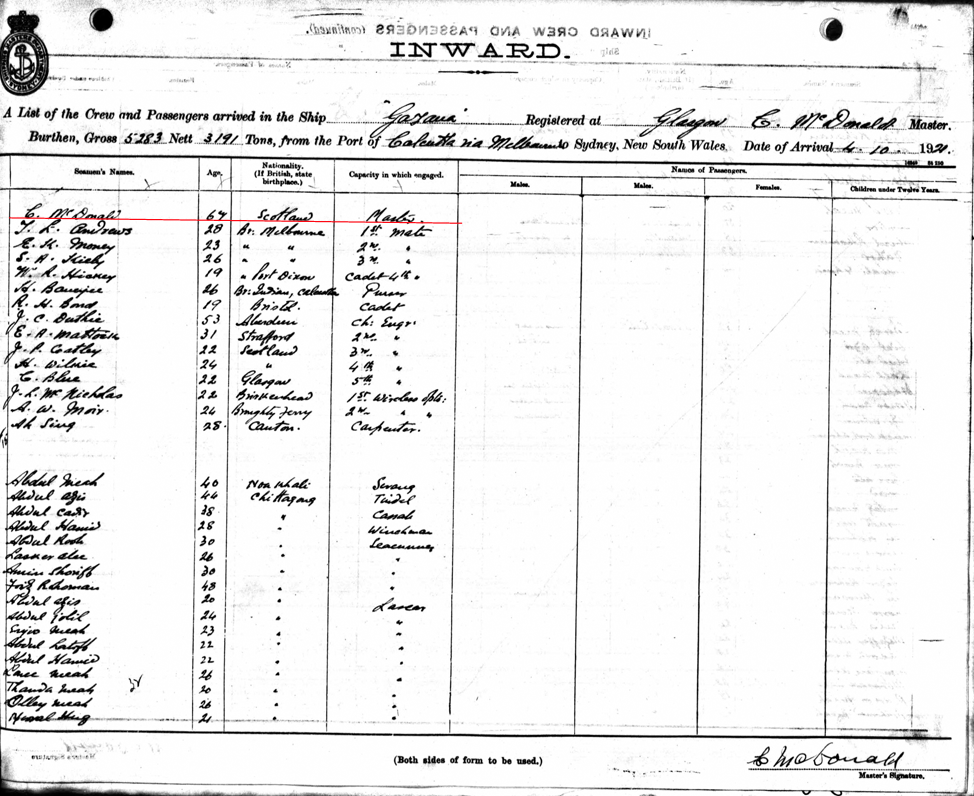 INWARD CREW AND PASSENGERS (continued).
INWARD.
A List of the Crew and Passengers arrived in the Ship Gazana Registered at Glasgow C. McDonald Master.
Burthen, Gross 5283 Nett 3191 Tons, from the Port of Calcutta via Melbourne to Sydney, New South Wales. Date of Arrival 4. 10. 1921.
Seamen's Names. Age. Nationality. (If British, state birthplace.) Capacity in which engaged. Names of Passengers.
Males. Males. Females. Children under Twelve Years.
C. McDonald 67 Scotland Master.
T. L. Andrews 28 Br. Melbourne 1st Mate
E. H. Money 23 " " 2nd "
S. A. 26 " " 3rd "
W. R. Hickey 19 " Port Dixon Cadet 4th "
H. Banerjee 26 Br: Indian, Calcutta Purser
R. H. Bond 19 Bristol. Cadet
J. C. Duthie 53 Aberdeen Ch: Engr.
E. A. Mattock 31 Strafford 2nd "
J. P. Coatley 22 Scotland 3rd "
H. Wilkie 24 " 4th "
C. Blue 22 Glasgow 5th "
J. L. McNicholas 22 Birkenhead 1st Wireless Optr:
A. W. Moir. 24 Broughty Ferry 2nd " "
Ah Sing 28. Canton. Carpenter.
Abdul Meah 40 Noakhali Serang
Abdul Azis 44 Chittagong Tindel
Abdul Cadir 38 " Cassab
Abdul Hamid 28 " Winchman
Abdul Rook 30 " Seacunney
Lasker Alee 26 " "
Amin Shoriff 30 " "
Rohoman 48 " "
Abdul Azis 20 " Lascar
Abdul Jolil 24 " "
Meah 23 " "
Abdul Latiff 22 " "
Abdul Hamid 22 " "
Meah 26 " "
Thanda Meah 20 " "
Olley Meah 26 " "
Huq 21 " "
(Both sides of form to be used.)
C McDonald
Master's Signature.